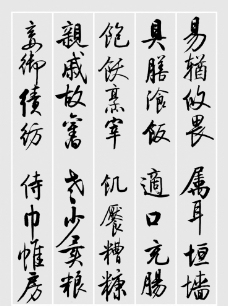 易輶攸畏 屬耳垣墻
具膳飡飯 適口充腸
飽飫烹宰 飢厭糟糠
親戚故舊 老少異粮
妾御績紡 侍巾帷房